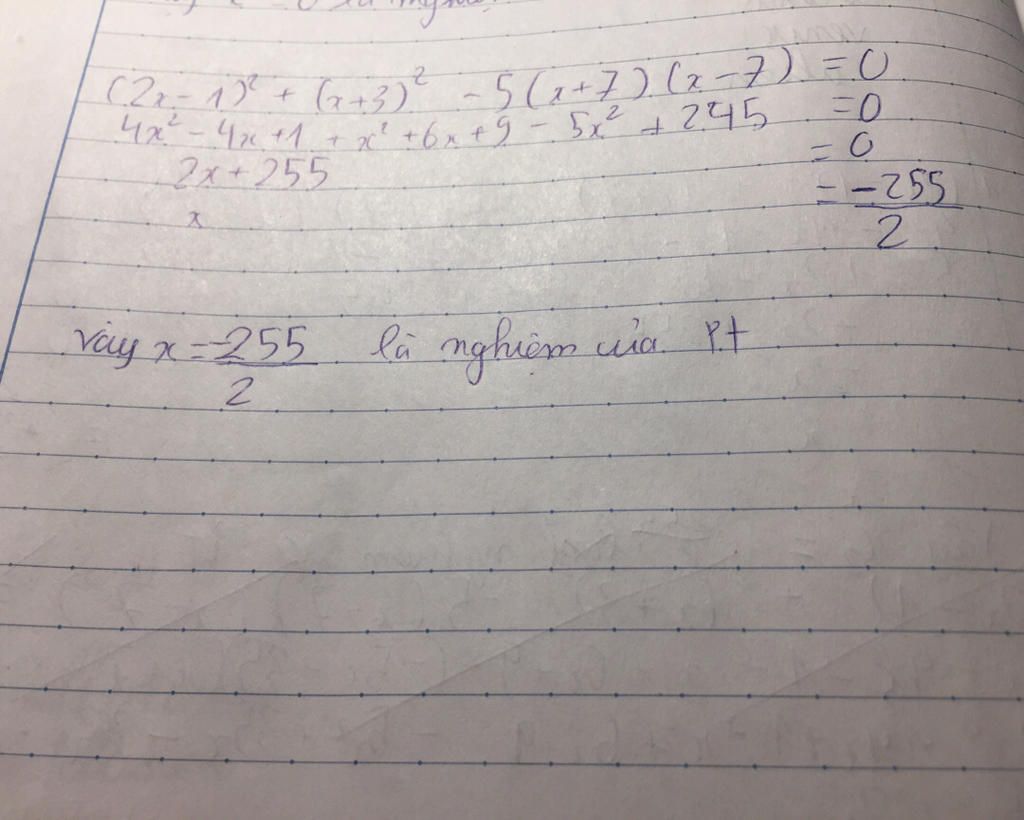 là
(2x-1)² + (x+3)² - 5(x+7)(x-7) = 0
4x² - 4x + 1 + x² + 6x + 9 - 5x² + 245 = 0
2x + 255 = 0
x = -255/2
Vậy x = -255/2 là nghiệm của Pt